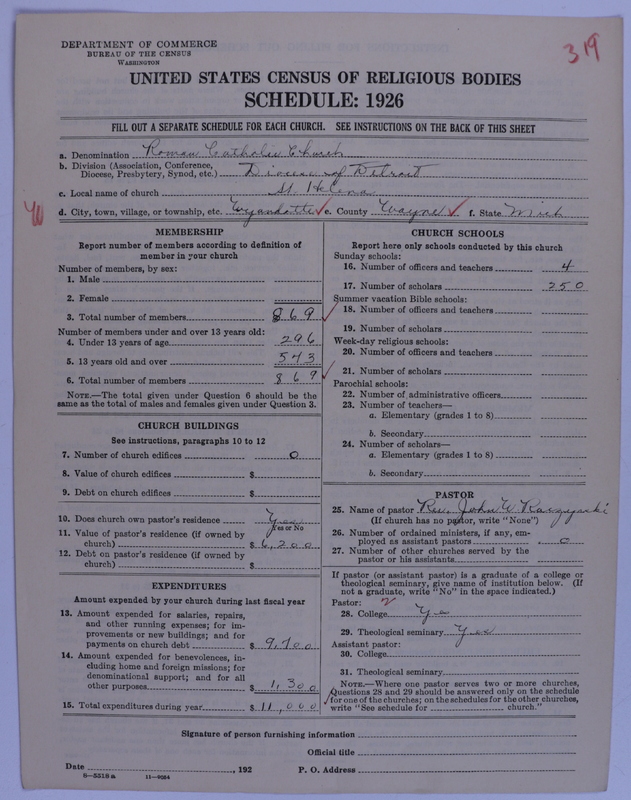 DEPARTMENT OF COMMERCE
BUREAU OF THE CENSUS
WASHINGTON
319
UNITED STATES CENSUS OF RELIGIOUS BODIES
SCHEDULE: 1926
FILL OUT A SEPARATE SCHEDULE FOR EACH CHURCH. SEE INSTRUCTIONS ON THE BACK OF THIS SHEET
a. Denomination Roman Catholic Church
b. Division (Association, Conference, Diocese, Presbytery, Synod, etc.) Diocese of Detroit
c. Local name of church St. Helena
d. City, town, village, or township, etc. Wyandotte e. County Wayne f. State Mich
MEMBERSHIP
Report number of members according to definition of
member in your church
Number of members, by sex:
1. Male
2. Female
3. Total number of members 869
Number of members under and over 13 years old:
4. Under 13 years of age 296
5. 13 years old and over 543
6. Total number of members 869
NOTE.—The total given under Question 6 should be
same as the total of males and females given under Question 3.
CHURCH BUILDINGS
See instructions, paragraphs 10 to 12
7. Number of church edifices 0
8. Value of church edifices $
9. Debt on church edifices $
10. Does church own pastor's residence Yes
Yes or No
11. Value of pastor's residence (if owned by
church) $ 6,200
12. Debt on pastor's residence (if owned by
church) $
EXPENDITURES
Amount expended by your church during last fiscal year
13. Amount expended for salaries, repairs,
and other running expenses; for im-
provements or new buildings; and for
payments on church debt $ 9,700
14. Amount expended for benevolences, in-
cluding home and foreign missions; for
denominational support; and for all
other purposes $ 1,300
15. Total expenditures during year $ 11,000
CHURCH SCHOOLS
Report here only schools conducted by this church
Sunday schools:
16. Number of officers and teachers 4
17. Number of scholars 250
Summer vacation Bible schools:
18. Number of officers and teachers
19. Number of scholars
Week-day religious schools:
20. Number of officers and teachers
21. Number of scholars
Parochial schools:
22. Number of administrative officers
23. Number of teachers—
a. Elementary (grades 1 to 8)
b. Secondary
24. Number of scholars—
a. Elementary (grades 1 to 8)
b. Secondary
PASTOR
25. Name of pastor Rev. John W.
(If church has no pastor, write "None")
26. Number of ordained ministers, if any, em-
ployed as assistant pastors 0
27. Number of other churches served by the
pastor or his assistants
If pastor (or assistant pastor) is a graduate of a college or
theological seminary, give name of institution below. (If
not a graduate, write "No" in the space indicated.)
Pastor: 2
28. College Yes
29. Theological seminary Yes
Assistant pastor:
30. College
31. Theological seminary
NOTE.—Where one pastor serves two or more churches,
Questions 28 and 29 should be answered only on the schedule
for one of the churches; on the schedules for the other churches,
write "See schedule for church."
Signature of person furnishing information
Official title
Date , 192 P. O. Address
8—5518a 11—9054